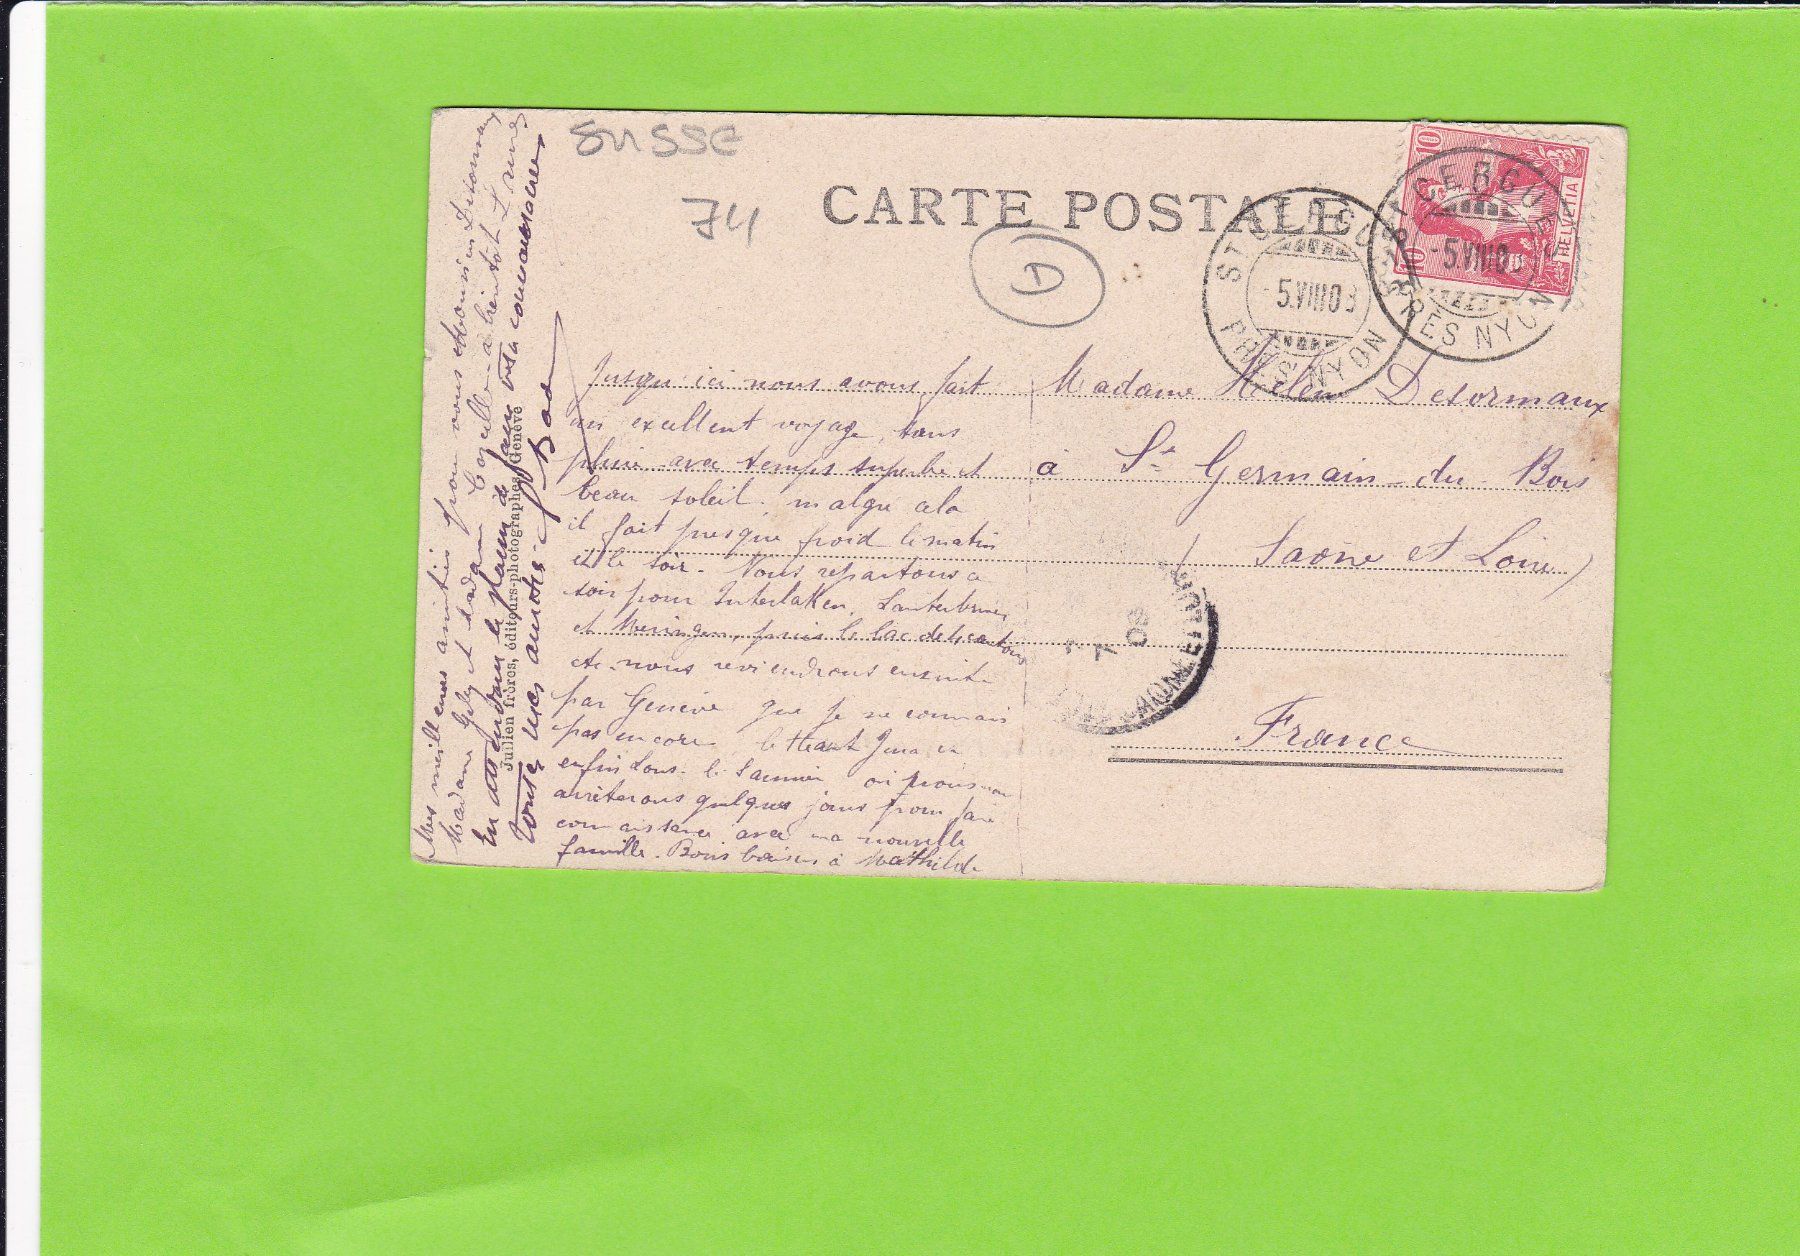 SUISSE
74
CARTE POSTALE
D
10
10
HELVETIA
ST CERGUES
-5.VIII.08
PRÈS NYON
ST CERGUES
-5.VIII.08
PRÈS NYON
Jusqu'ici nous avons fait
un excellent voyage, sans
pluie avec temps superbe et
beau soleil, malgré cela
il fait presque froid le matin
et le soir. Nous repartons ce
soir pour Interlaken, Lauterbrunnen
et Meiringen, puis le lac des 4 cantons
etc. nous reviendrons ensuite
par Genève que je ne connais
pas encore, le Haut Jura et
enfin Lons-le-Saunier où nous nous
arrêterons quelques jours pour faire
connaissance avec ma nouvelle
famille. Bons baisers à Mathilde
Mes meilleures amitiés pour vous Monsieur Desormaux
Madame Gely et Madame à bientôt
En attendant le plaisir de faire votre connaissance,
toutes mes amitiés
Julien frères, éditeurs-photographes, Genève
Madame Hélène Desormaux
à St Germain-du-Bois
(Saône et Loire)
France
7
08